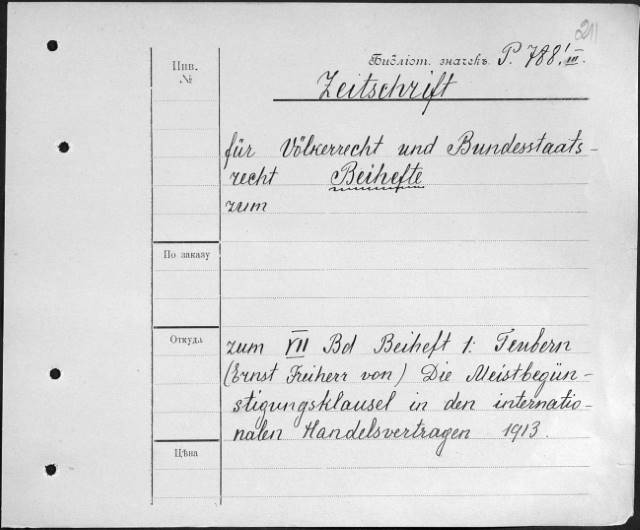 211
Библіот. значекъ P. 788!III.
Инв.
№
Zeitschrift
für Völkerrecht und Bundesstaats-
recht Beihefte
zum
По заказу
Откуда
zum VII Bd Beiheft 1: Teubern
(Ernst Freiherr von) Die Meistbegün-
stigungsklausel in den internatio-
nalen Handelsvertragen 1913.
Цѣна